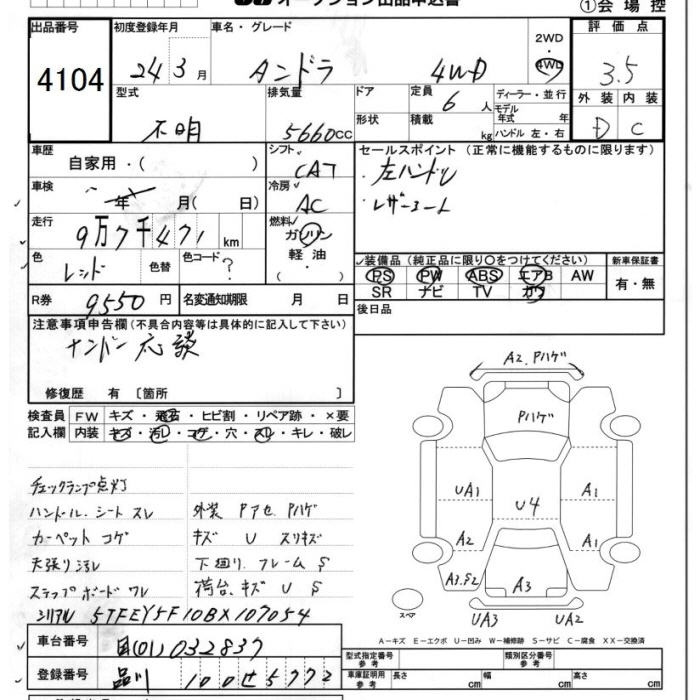 オークション出品申込書
①会場控
出品番号 初度登録年月 車名・グレード 2WD 評価点
4104 24年3月 タンドラ 4WD 4WD 3.5
型式 排気量 ドア 定員 ディーラー・並行 外装 内装
不明 5660cc 6人 モデル年式 年 D C
形状 積載 kg ハンドル 左・右
車歴 シフト セールスポイント (正常に機能するものに限ります)
自家用・( ) CAT ・左ハンドル
車検 年 月( 日) 冷房 AC ・レザーシート
走行 9万7千471km 燃料 ガソリン 軽油 ・
色 レッド 色替 色コード ? 装備品(純正品に限り○をつけてください) 新車保証書
PS PW ABS エアB AW 有・無
SR ナビ TV カワ
R券 9550円 名変通知期限 月 日
後日品
注意事項申告欄(不具合内容等は具体的に記入して下さい)
ナンバー応談
修復歴 有 〔箇所 〕
検査員 FW キズ・飛石・ヒビ割・リペア跡・×要
記入欄 内装 キズ・汚レ・コゲ・穴・スレ・キレ・破レ
A2.Pハゲ
Pハゲ
UA1 U4 A1
A2 A1
A3.S2 A3
スペア UA3 UA2
チェックランプ点灯
ハンドル.シート スレ 外装 Pアセ Pハゲ
カーペット コゲ キズ U スリキズ
天張り汚レ 下廻り.フレーム S
ステップボード ワレ 荷台.キズ U S
シリアル 5TFEY5F10BX107054
A−キズ E−エクボ U−凹み W−補修跡 S−サビ C−腐食 XX−交換済
車台番号 国(01)032837
型式指定番号 参考 類別区分番号 参考
登録番号 品川 100せ5772
車庫証明用 参考 長さ cm 幅 cm 高さ cm